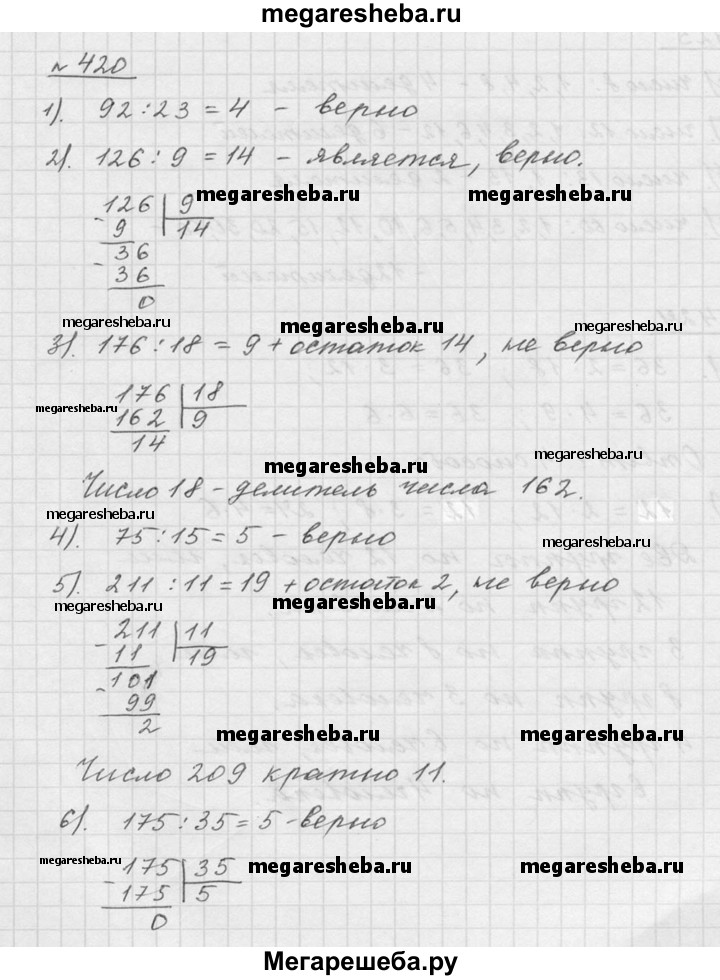 megaresheba.ru
№ 420
1). 92 : 23 = 4 - верно
2). 126 : 9 = 14 - является, верно.
126 | 9
megaresheba.ru megaresheba.ru
- 9 | 14
36
- 36
0
megaresheba.ru megaresheba.ru
3). 176 : 18 = 9 + остаток 14, не верно
176 | 18
megaresheba.ru megaresheba.ru
162 | 9
14
megaresheba.ru
Число 18 - делитель числа 162.
megaresheba.ru
4). 75 : 15 = 5 - верно
megaresheba.ru
5). 211 : 11 = 19 + остаток 2, не верно
megaresheba.ru megaresheba.ru
- 211 | 11
11 | 19
101
- 99
2
megaresheba.ru megaresheba.ru
Число 209 кратно 11.
6). 175 : 35 = 5 - верно
megaresheba.ru megaresheba.ru megaresheba.ru
- 175 | 35
175 | 5
0
Мегарешеба.ру